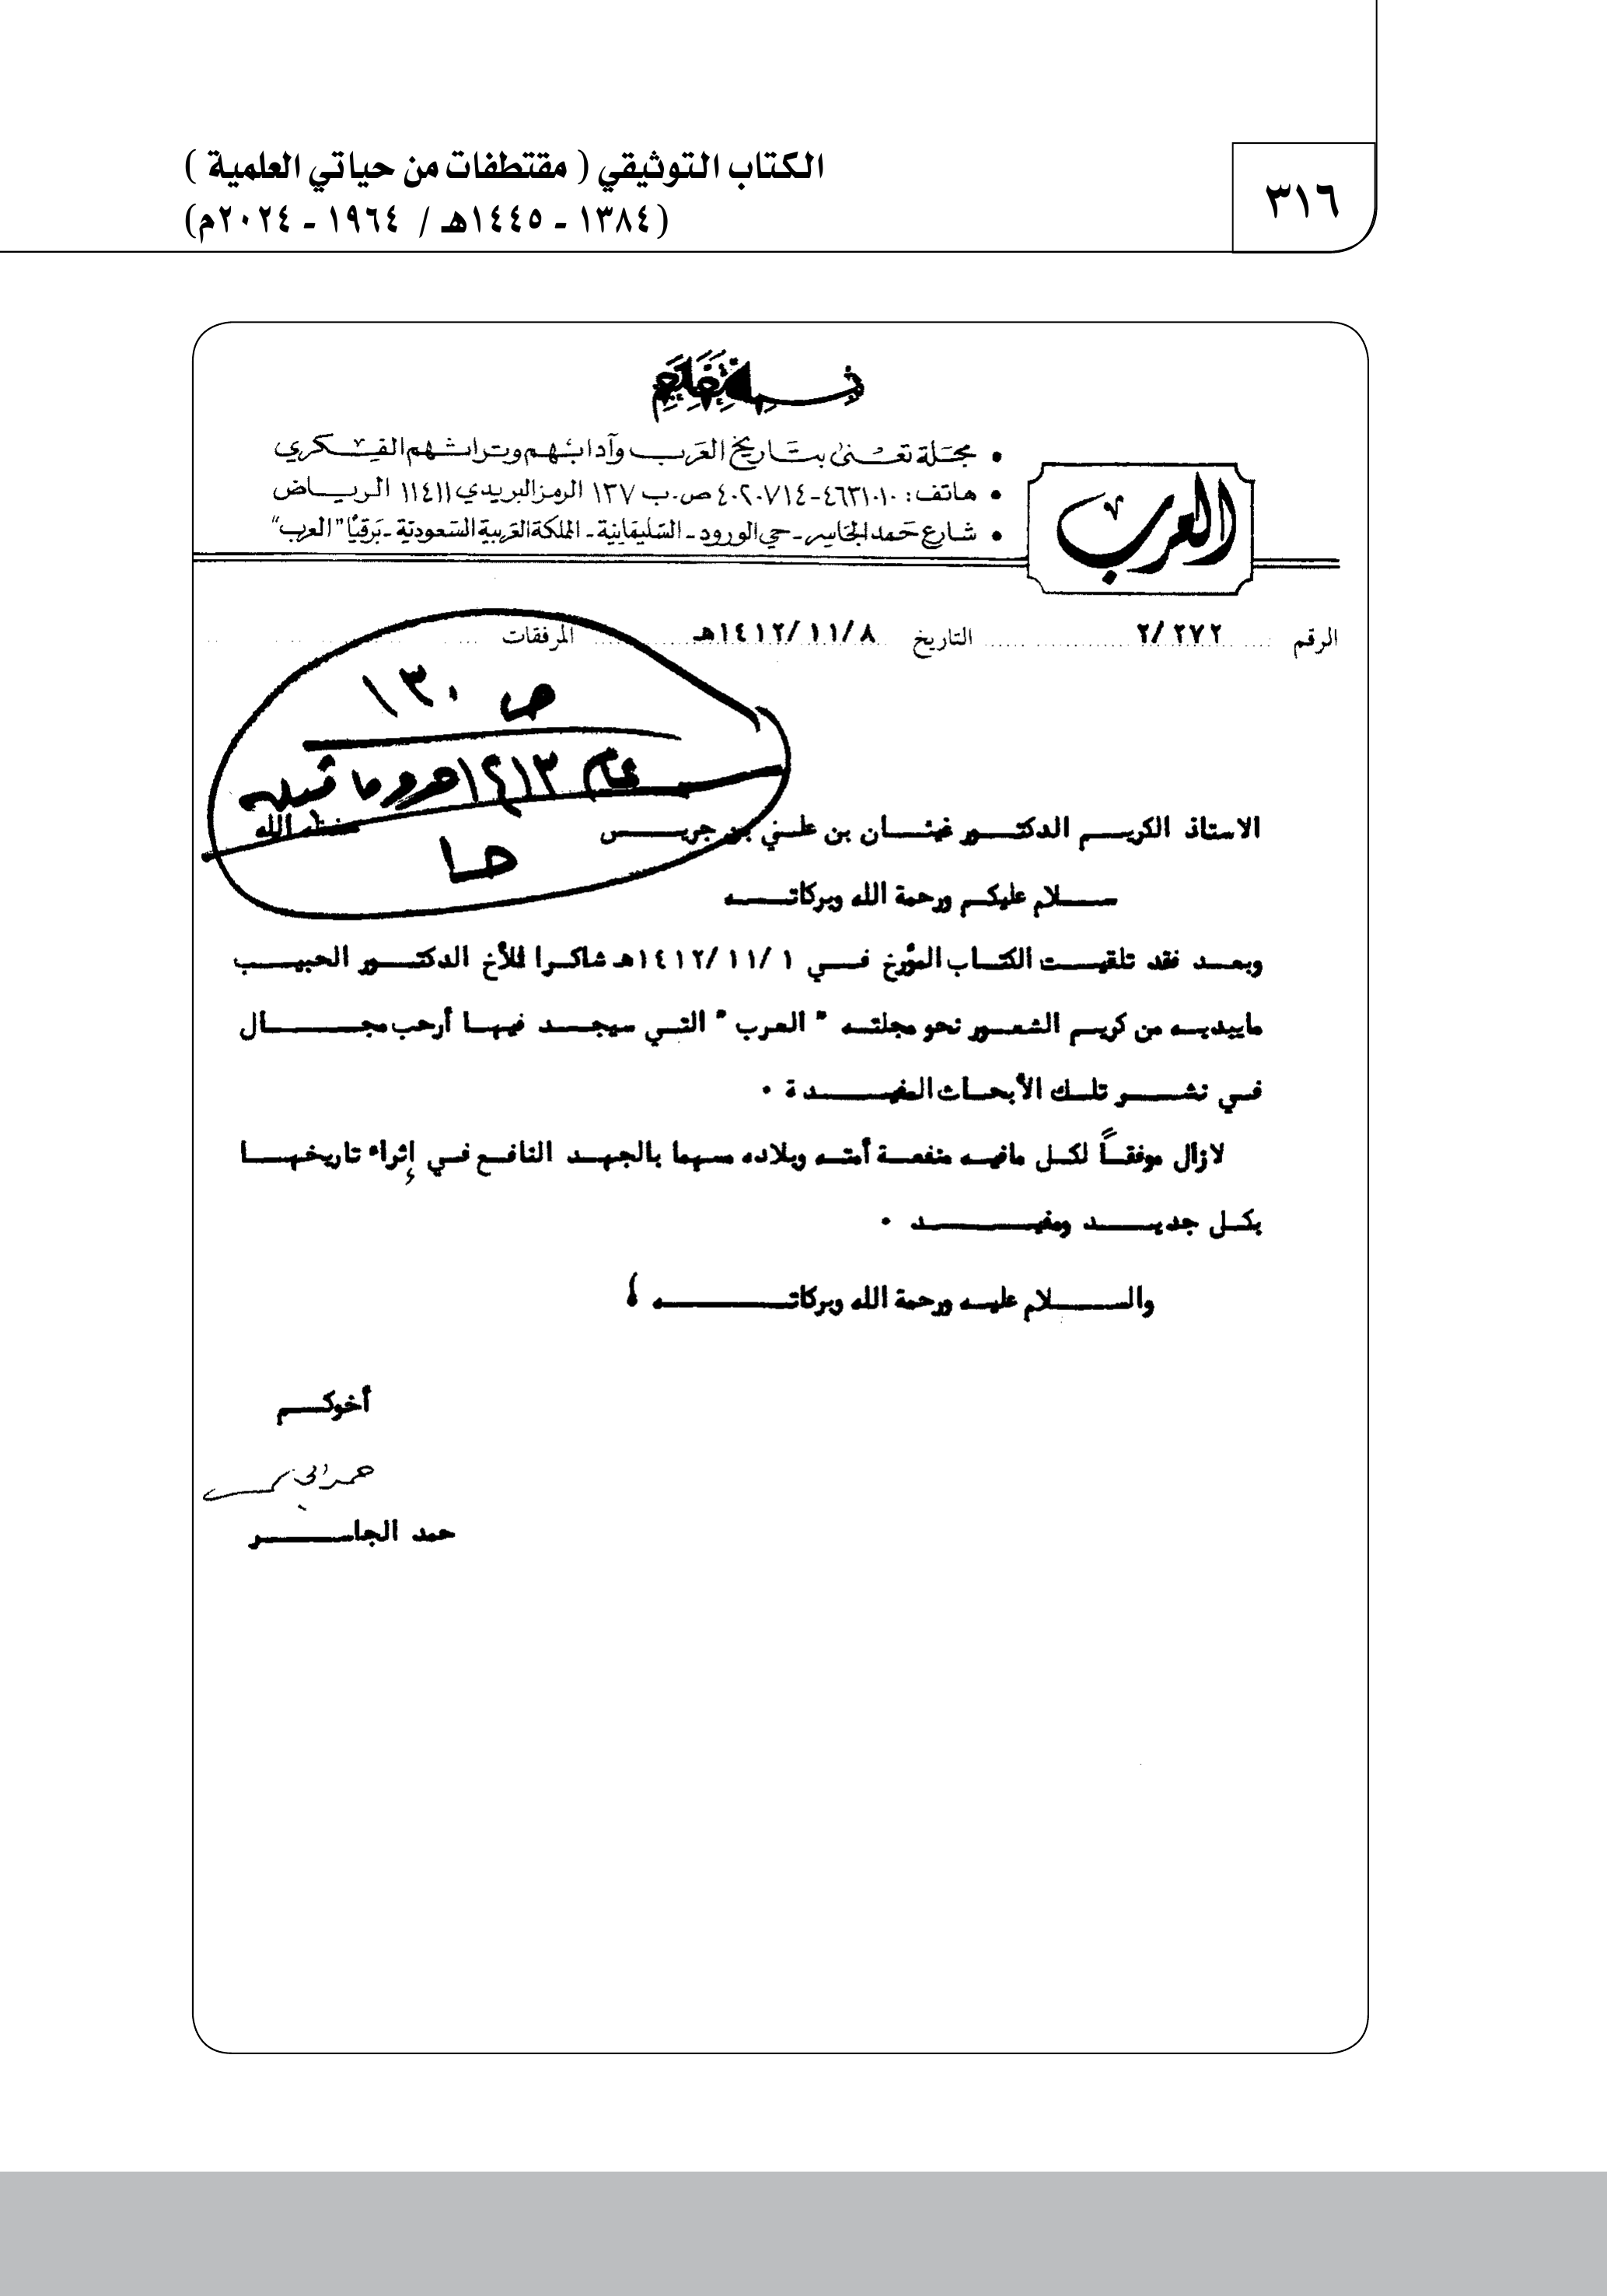 ٣١٦
الكتاب التوثيقي ( مقتطفات من حياتي العلمية )
(١٣٨٤ - ١٤٤٥هـ / ١٩٦٤ - ٢٠٢٤م)
العرب
• مجلة تعنى بتاريخ العرب وآدابهم وتراثهم الفكري
• هاتف: ٤٦٣١٠١٠-٤٠٢٠٧١٤ ص.ب ١٣٧ الرمز البريدي ١١٤١١ الرياض
• شارع حمد الجاسر - حي الورود - السليمانية - المملكة العربية السعودية - برقيًا "العرب"
الرقم ٢/٢٧٢ التاريخ ١٤١٢/١١/٨هـ المرفقات
ص ١٣٠
عام ١٤١٣هـ وما قبله
الاستاذ الكريم الدكتور غيثان بن علي بن جريس حفظه الله
سلام عليكم ورحمة الله وبركاته
وبعد فقد تلقيت الكتاب المؤرخ في ١٤١٢/١١/١هـ شاكرا للأخ الدكتور الحبيب
مايبديه من كريم الشعور نحو مجلته " العرب " التي سيجد فيها أرحب مجال
في نشر تلك الأبحاث المفيدة .
لازال موفقاً لكل مافيه منفعة أمته وبلاده مسهما بالجهد النافع في إثراء تاريخها
بكل جديد ومفيد .
والسلام عليه ورحمة الله وبركاته
أخوكم
حمد الجاسر